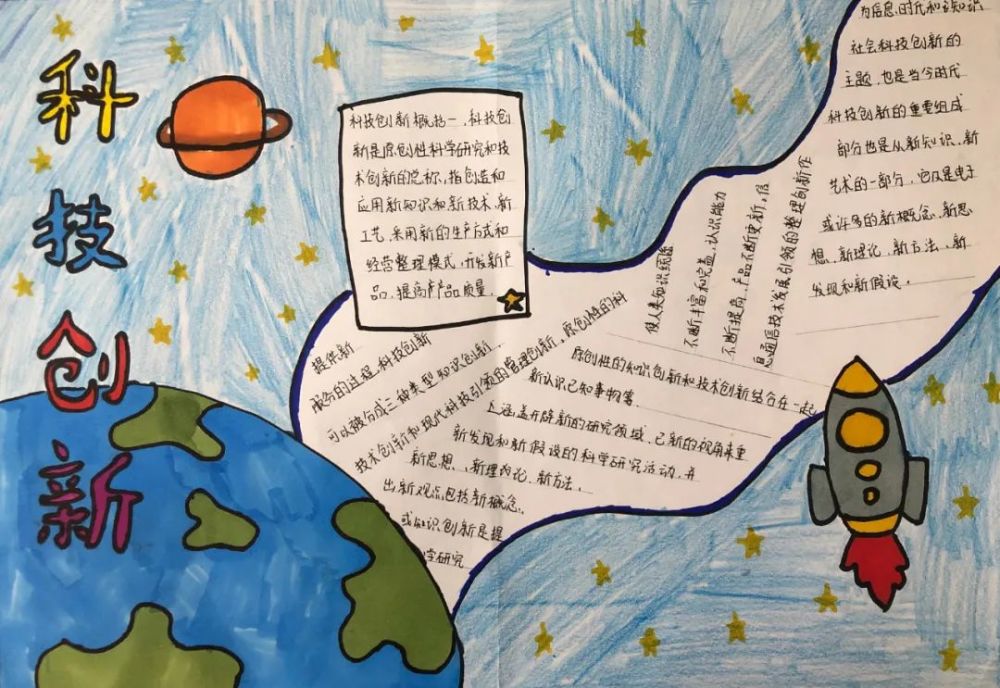 科技创新
科技创新概括一，科技创
新是原创性科学研究和技
术创新的总称，指创造和
应用新知识和新技术、新
工艺，采用新的生产方式和
经营整理模式，开发新产
品，提高产品质量，
提供新
服务的过程 科技创新
可以被分成三种类型 知识创新
技术创新和现代科技引领的管理创新，原创性的科
学研究
或知识创新是提
出新观点，包括新概念、
新思想、新理论、新方法，
新发现和新假设的科学研究活动，并
涵盖开辟新的研究领域，已新的视角来重
新认识已知事物等
原创性的知识创新和技术创新结合在一起
使人类知识统
不断丰富和完善，认识能力
不断提高，产品不断更新，信
息通信技术发展引领的整理创新作
为信息时代和知识
社会科技创新的
主题，也是当今时代
科技创新的重要组成
部分也是从新知识、新
艺术的一部分，它仅是电子
或许多的新概念、新思
想、新理论、新方法、新
发现和新假设。